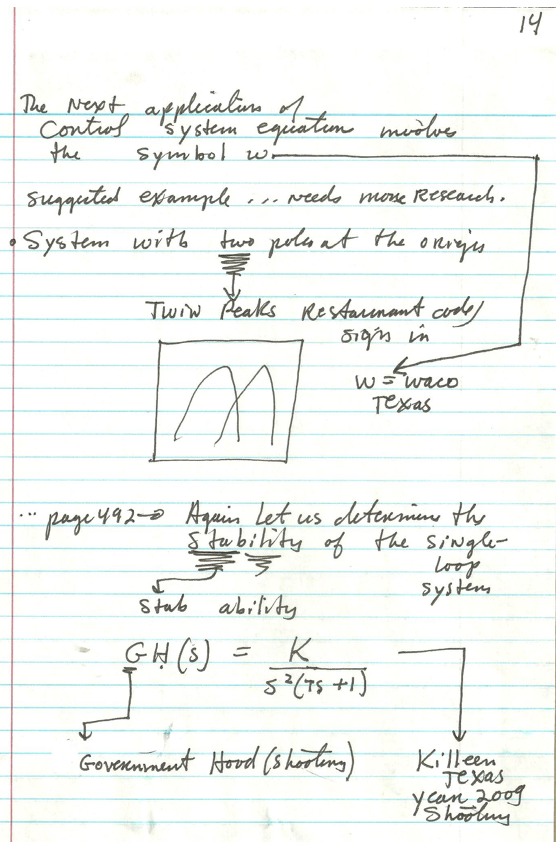 14
The Next application of
Control system equation involves
the symbol w
suggested example ... needs more Research.
• System with two poles at the origin
Twin Peaks Restaurant code/
sign in
w = waco
Texas
... page 492 → Again Let us determine the
stability of the single-
loop
system
stab ability
GH(s) = K
s²(τs + 1)
Government Hood (shooting)
Killeen
Texas
year 2009
Shooting